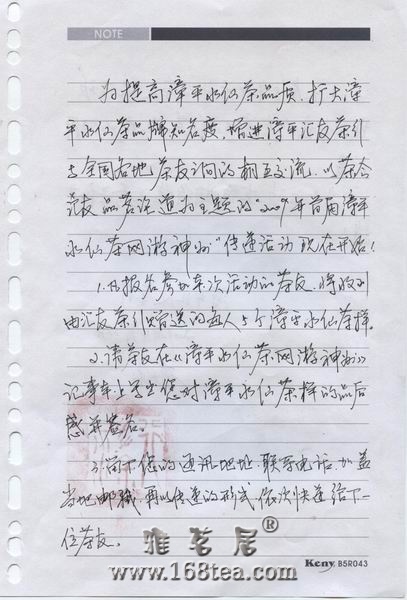 NOTE
为提高漳平水仙茶品质、打大漳
平水仙茶品牌知名度,增进漳平汇友茶行
与全国各地茶友间的相互交流,以茶会
友品茗论道为主题的"2009年首届漳平
水仙茶网游神州"传递活动现在开始!
1.凡报名参加本次活动的茶友,将收到
由汇友茶行赠送的每人5个漳平水仙茶样。
2.请茶友在《漳平水仙茶网游神州》
记事本上写出您对漳平水仙茶样的品后
感并签名。
3.留下您的通讯地址、联系电话、加盖
当地邮戳,再以传递的形式依次快递给下一
位茶友。
雅茗居®
www.168tea.com
Keny B5R043